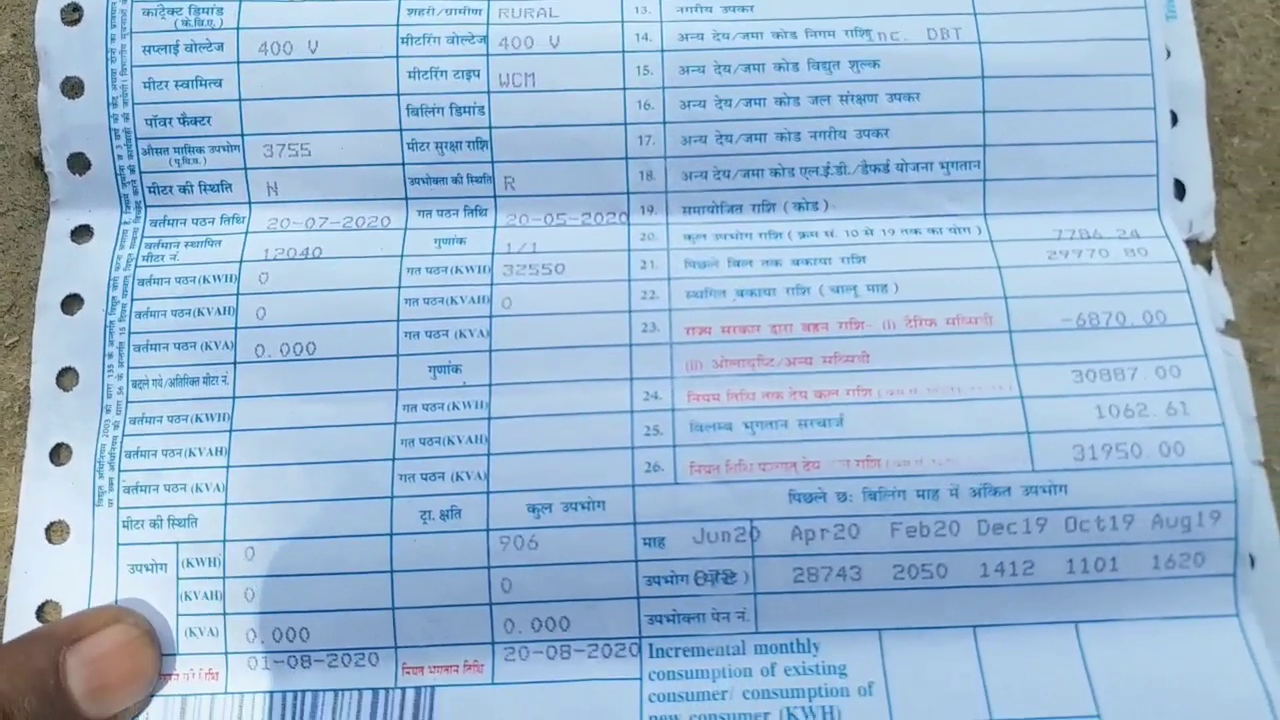 कांट्रेक्ट डिमांड (के.वि.ए.) शहरी/ग्रामीण RURAL 13. नगरीय उपकर
सप्लाई वोल्टेज 400 V मीटरिंग वोल्टेज 400 V 14. अन्य देय/जमा कोड निगम राशि nc. DBT
मीटर स्वामित्व मीटरिंग टाइप WCM 15. अन्य देय/जमा कोड विद्युत शुल्क
पॉवर फैक्टर बिलिंग डिमांड 16. अन्य देय/जमा कोड जल संरक्षण उपकर
औसत मासिक उपभोग 3755 मीटर सुरक्षा राशि 17. अन्य देय/जमा कोड नगरीय उपकर
मीटर की स्थिति N उपभोक्ता की स्थिति R 18. अन्य देय/जमा कोड एल.ई.डी./डैफर्ड योजना भुगतान
वर्तमान पठन तिथि 20-07-2020 गत पठन तिथि 20-05-2020 19. समायोजित राशि (कोड)
वर्तमान स्थापित मीटर नं. 12040 गुणांक 1/1 20. कुल उपभोग राशि (क्रम सं. 10 से 19 तक का योग) 7786.24
वर्तमान पठन(KWH) 0 गत पठन(KWH) 32550 21. पिछले बिल तक बकाया राशि 29970 80
वर्तमान पठन(KVAH) 0 गत पठन(KVAH) 0 22. स्थगित बकाया राशि (चालू माह)
वर्तमान पठन(KVA) 0.000 गत पठन(KVA) 23. राज्य सरकार द्वारा वहन राशि- (I) टैरिफ सब्सिडी -6870.00
बदले गये/अतिरिक्त मीटर नं. गुणांक (II) ओलावृष्टि/अन्य सब्सिडी
वर्तमान पठन(KWH) गत पठन(KWH) 24. नियत तिथि तक देय कुल राशि 30887.00
वर्तमान पठन(KVAH) गत पठन(KVAH) 25. विलम्ब भुगतान सरचार्ज 1062.61
वर्तमान पठन(KVA) गत पठन(KVA) 26. नियत तिथि पश्चात् देय राशि 31950.00
मीटर की स्थिति ट्रा. क्षति कुल उपभोग पिछले छ: बिलिंग माह में अंकित उपभोग
उपभोग (KWH) 0 906 माह Jun20 Apr20 Feb20 Dec19 Oct19 Aug19
(KVAH) 0 0 उपभोग 28743 2050 1412 1101 1620
(KVA) 0.000 0.000 उपभोक्ता पेन नं.
01-08-2020 नियत भुगतान तिथि 20-08-2020 Incremental monthly
consumption of existing
consumer/ consumption of
new consumer (KWH)